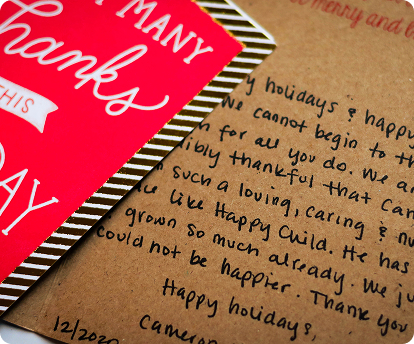 MANY
Thanks
THIS
DAY
merry and b
y holidays & happy
We cannot begin to th
for all you do. We a
ibly thankful that Cam
such a loving, caring & nu
like Happy Child. He has
grown so much already. We ju
could not be happier. Thank you
Happy holidays,
12/2020
Cameron